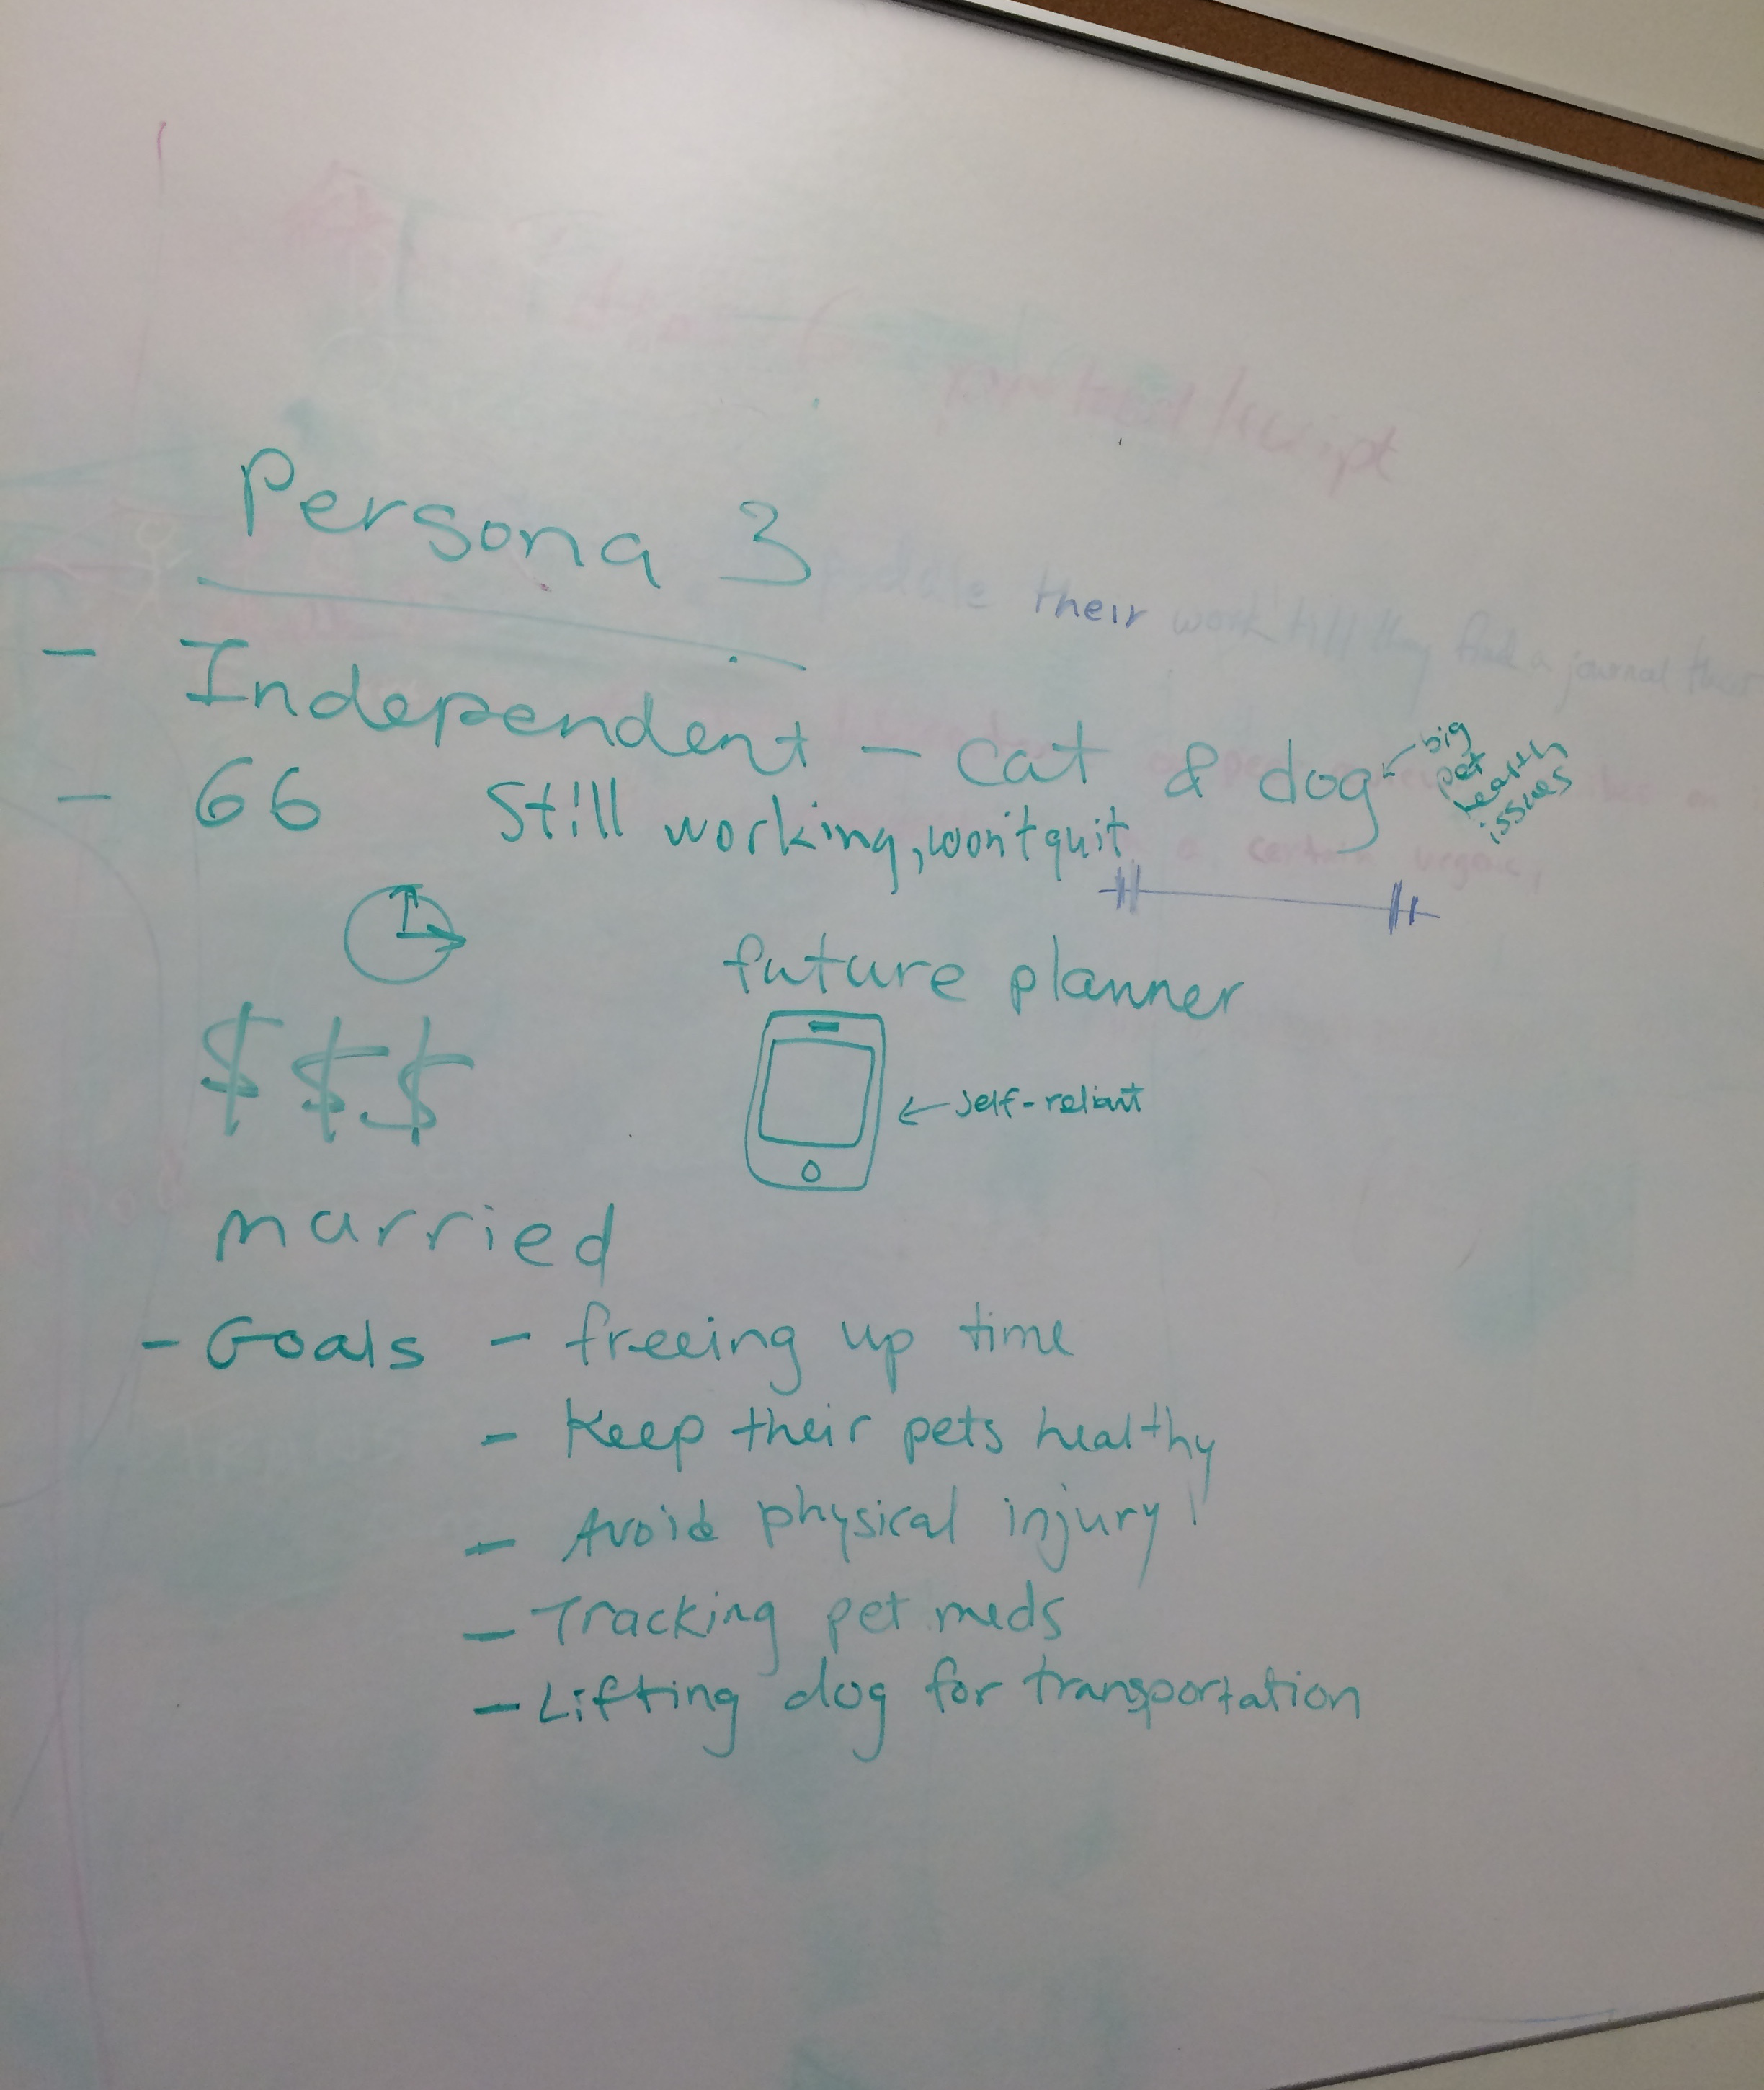 Persona 3
their work till they find a journal that
- Independent - cat & dog ← big pet health issues
- 66 Still working, won't quit
a certain urgency
future planner
$$$
← self-reliant
married
- Goals - freeing up time
- Keep their pets healthy
- Avoid physical injury!
- Tracking pet meds
- Lifting dog for transportation